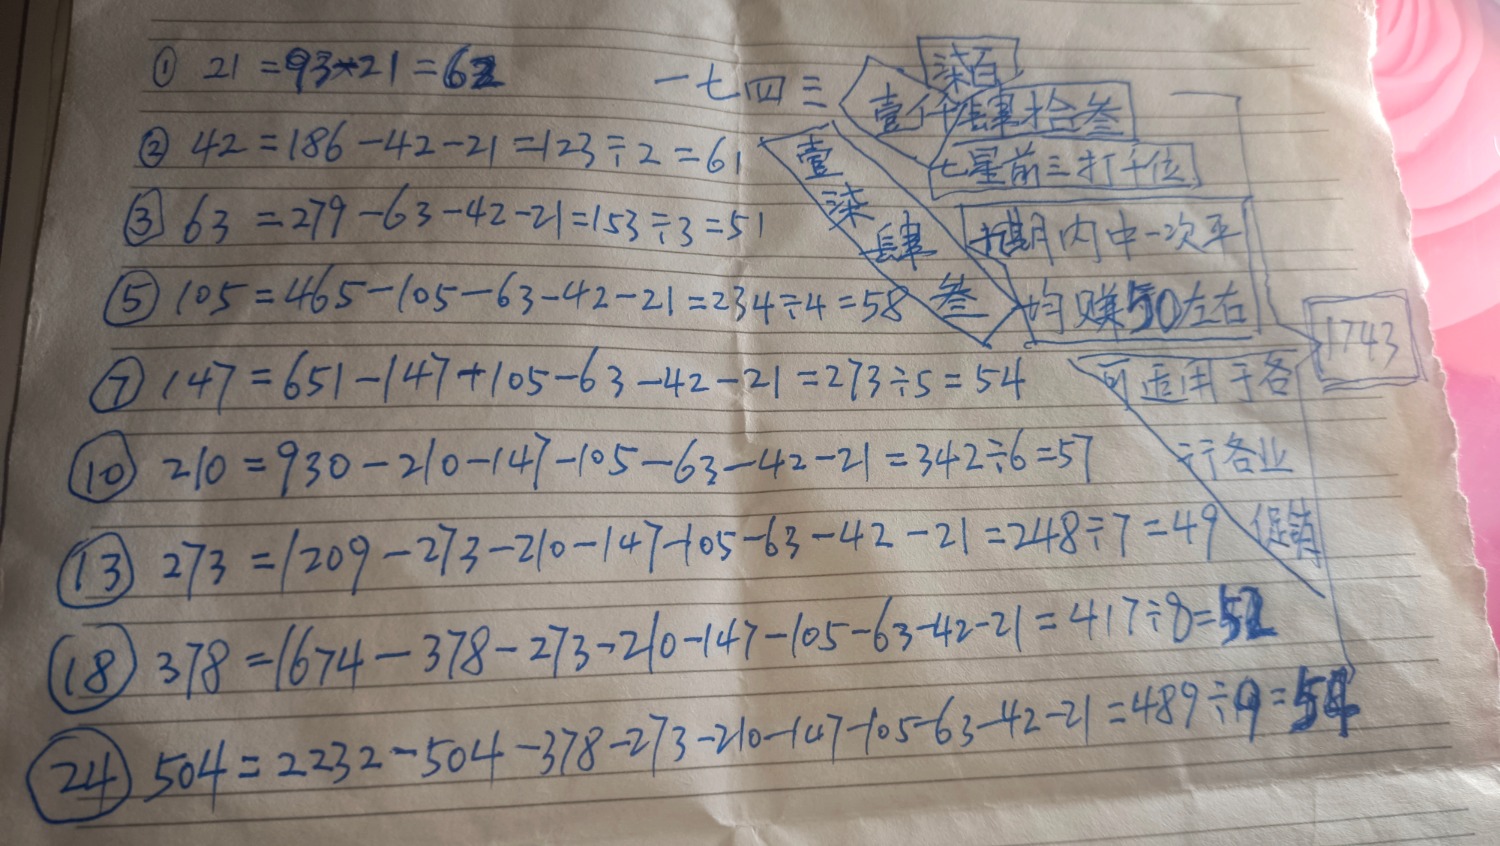 ① 21=93-21=62
② 42=186-42-21=123÷2=61
③ 63=279-63-42-21=153÷3=51
⑤ 105=465-105-63-42-21=234÷4=58
⑦ 147=651-147+105-63-42-21=273÷5=54
⑩ 210=930-210-147-105-63-42-21=342÷6=57
⑬ 273=1209-273-210-147-105-63-42-21=248÷7=49
⑱ 378=1674-378-273-210-147-105-63-42-21=417÷8=52
㉔ 504=2232-504-378-273-210-147-105-63-42-21=489÷9=54
一七四三
柒百
壹仟肆拾叁
七星前三打千位
壹柒肆叁
期内中一次平
均赚50左右
1743
可适用于各
行各业
促销